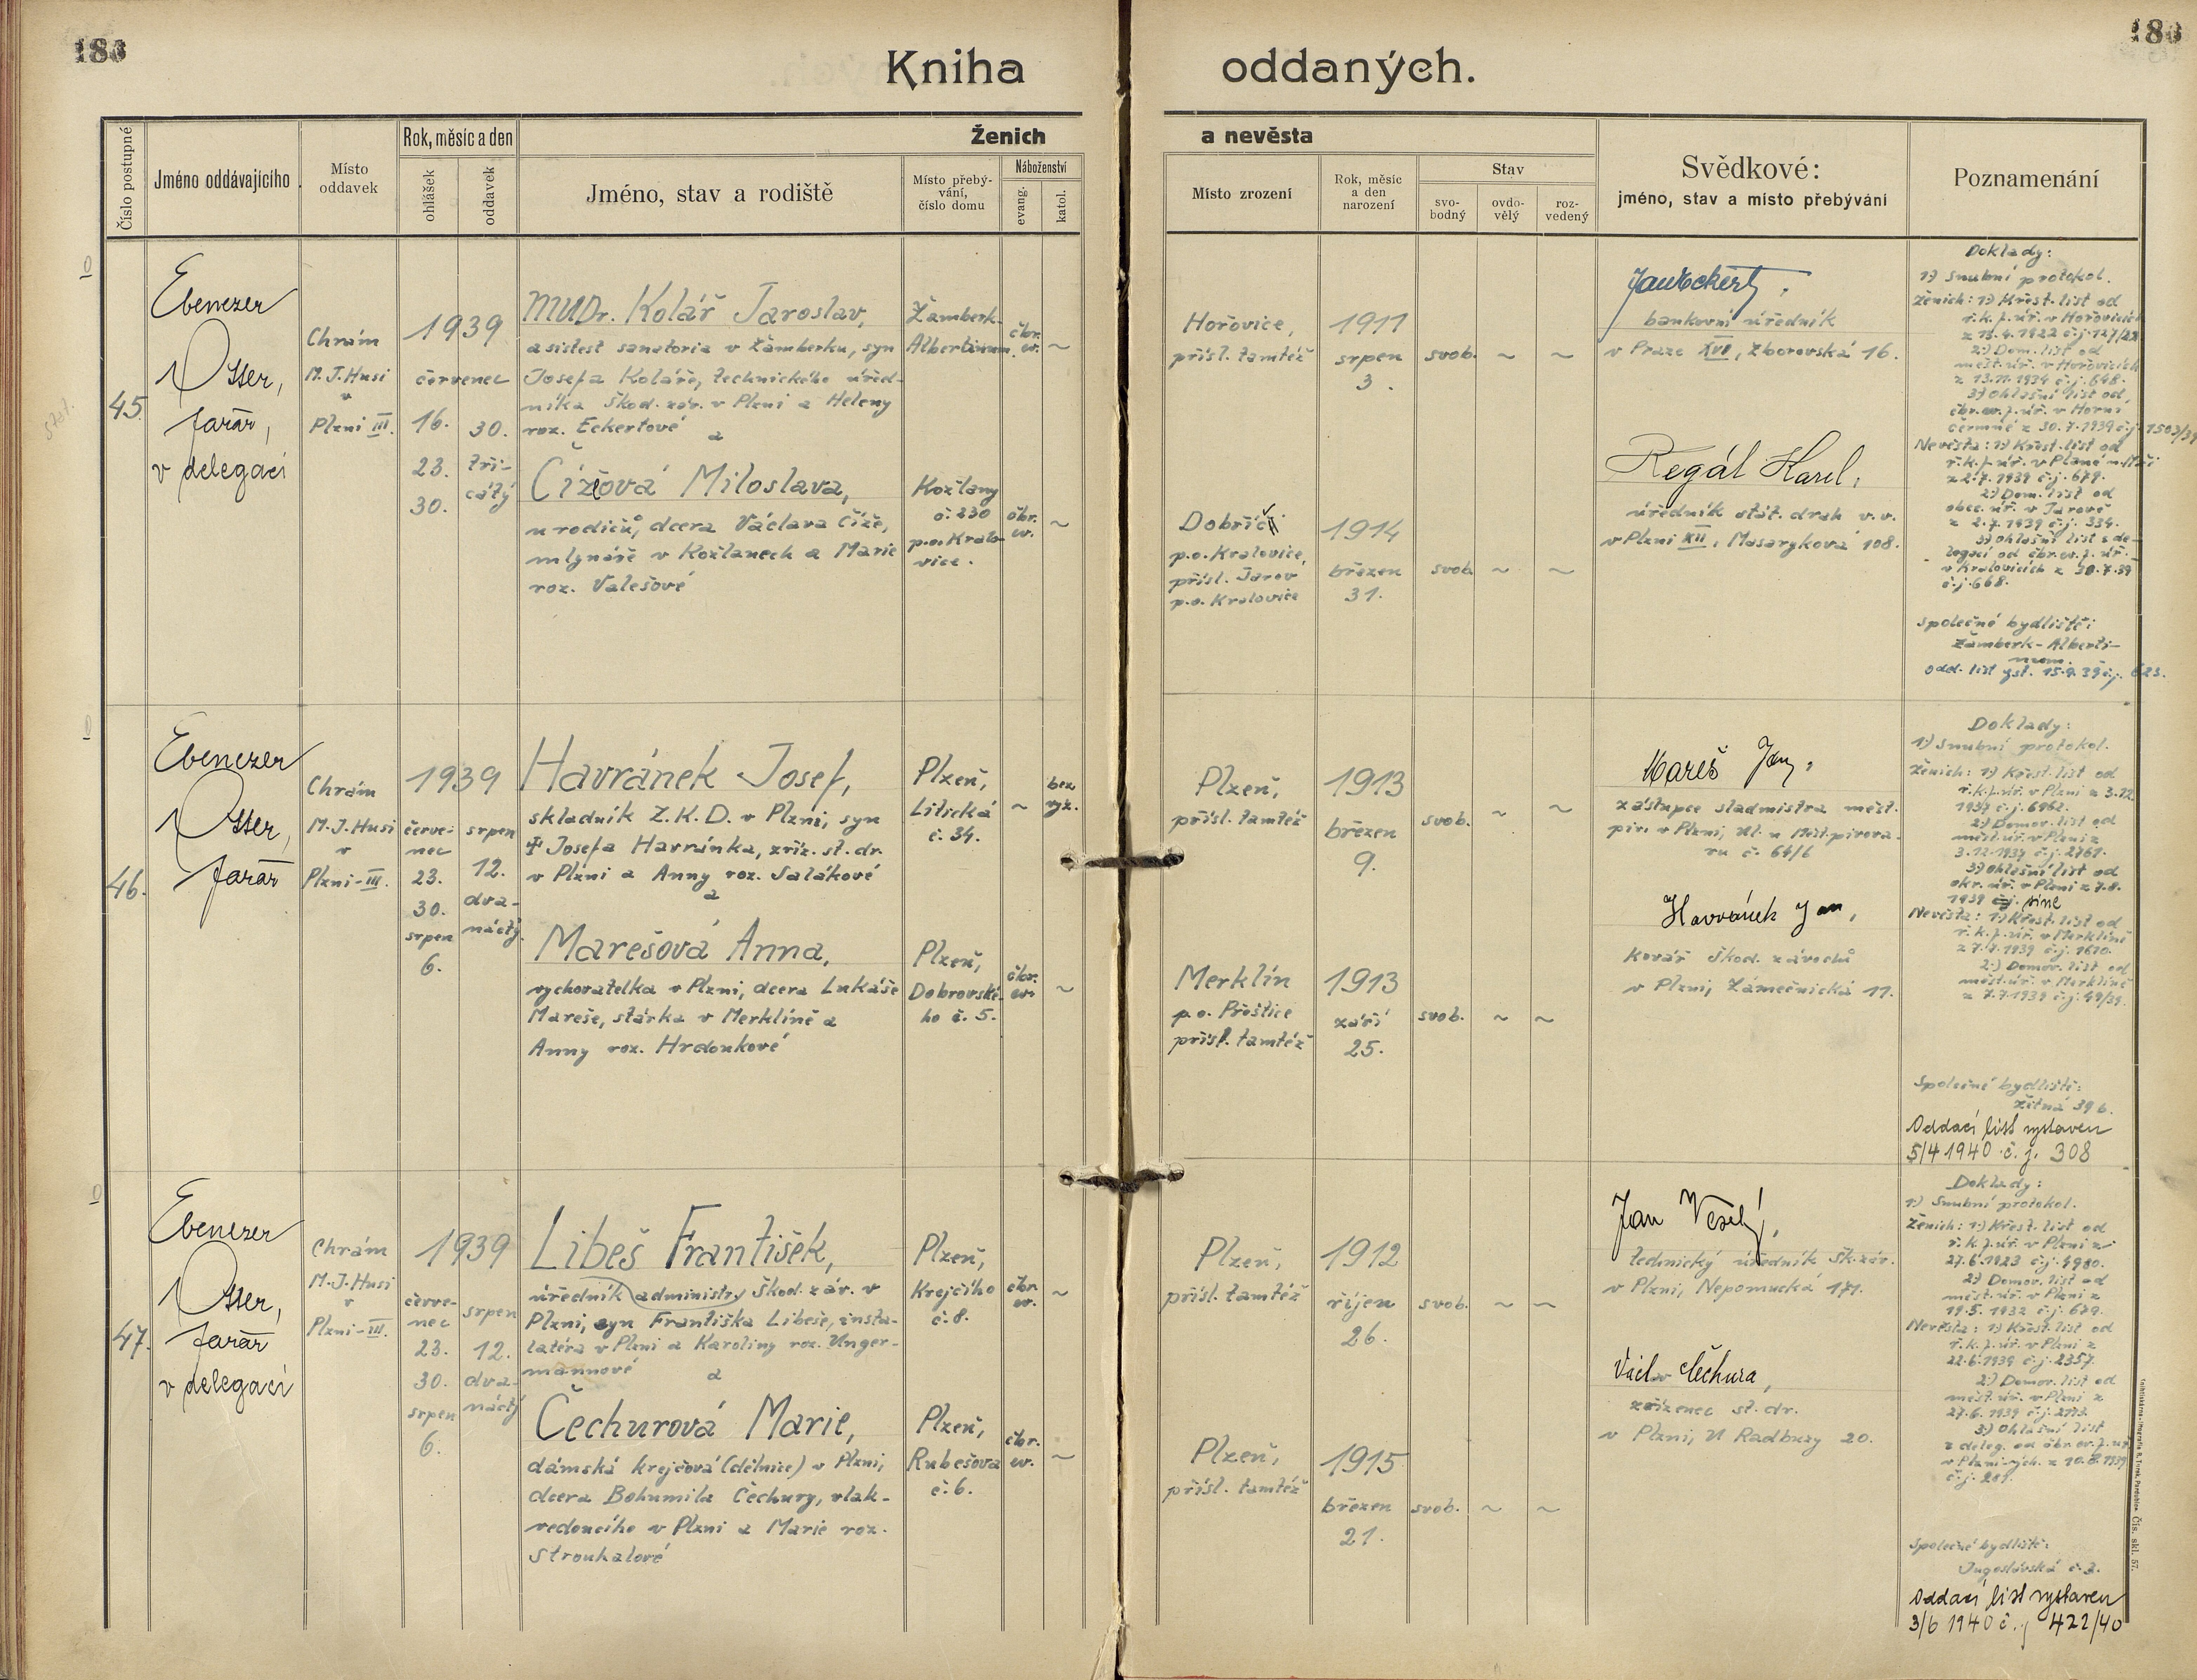 183
183
Kniha oddaných.
Číslo postupné
Jméno oddávajícího
Místo oddavek
Rok, měsíc a den
ohlášek
oddavek
Ženich a nevěsta
Jméno, stav a rodiště
Místo přebý-
vání,
číslo domu
Náboženství
evang.
katol.
Místo zrození
Rok, měsíc
a den
narození
Stav
svo-
bodný
ovdo-
vělý
roz-
vedený
Svědkové:
jméno, stav a místo přebývání
Poznamenání
45.
Ebenezer
Otter,
farář,
v delegaci
Chrám
M. J. Husi
v
Plzni III.
1939
červenec
16.
23.
30.
30.
tři-
cátý
MUDr. Kolář Jaroslav,
asistest sanatoria v Žamberku, syn
Josefa Koláře, technického úřed-
níka Škod. záv. v Plzni a Heleny
roz. Eckertové
a
Čížová Miloslava,
u rodičů, dcera Václava Číže,
mlynáře v Kožlanech a Marie
roz. Valešové
Žamberk-
Albertinum.
čbr.
ev.
~
Kožlany
č. 230
p. o. Kralo-
vice.
čbr.
ev.
~
Hořovice,
přísl. tamtéž
1911
srpen
3.
svob. ~ ~
Dobříč
p.o. Kralovice,
přísl. Jarov
p.o. Kralovice
1914
březen
31.
svob. ~ ~
Jan Eckert,
bankovní úředník
v Praze XVI, Zborovská 16.
Regál Karel,
úředník stát. drah v. v.
v Plzni XII, Masarykova 108.
Doklady:
1) Snubní protokol.
Ženich: 1) Křest. list od
ř. k. f. úř. v Hořovicích
z 15.4.1922 č.j. 127/22
2) Dom. list od
měst. úř. v Hořovicích
z 13.11.1934 č.j. 648.
3) Ohlašní list od
čbr. ev. f. úř. v Horní
Čermné z 30.7.1939 č.j. 1503/39
Nevěsta: 1) Křest. list od
ř. k. f. úř. v Plané n. Mží
z 2.7.1939 č.j. 679.
2) Dom. list od
obec. úř. v Jarově
z 2.7.1939 č.j. 334.
3) Ohlašní list s de-
legací od čbr. ev. f. úř.
v Kralovicích z 30.7.39
č.j. 668.
Společné bydliště:
Žamberk - Alberti-
num.
Odd. list vyst. 15.9.39 č.j. 623.
46.
Ebenezer
Otter,
farář
Chrám
M. J. Husi
v
Plzni - III.
1939
červe-
nec
23.
30.
srpen
6.
srpen
12.
dva-
náctý.
Havránek Josef,
skladník Z. K. D. v Plzni, syn
† Josefa Havránka, zříz. st. dr.
v Plzni a Anny roz. Salákové
a
Marešová Anna,
vychovatelka v Plzni, dcera Lukáše
Mareše, stárka v Merklíně a
Anny roz. Hrdonkové
Plzeň,
Litická
č. 34.
~
bez
vyz.
Plzeň,
Dobrovské-
ho č. 5.
čbr.
ev.
~
Plzeň,
přísl. tamtéž
1913
březen
9.
svob. ~ ~
Merklín
p. o. Přeštice
přísl. tamtéž
1913
září
25.
svob. ~ ~
Mareš Jan,
zástupce sladmistra měšť.
piv. v Plzni, Ul. u Měšť. pivova-
ru č. 64/6
Havránek Jan,
kovář Škod. závodů
v Plzni, Zámečnická 11.
Doklady:
1) Snubní protokol.
Ženich: 1) Křest. list od
ř. k. f. úř. v Plzni z 3.12.
1937 č.j. 6962.
2) Domov. list od
měst. úř. v Plzni z
3.12.1937 č.j. 2761.
3) Ohlašní list od
okr. úř. v Plzni z 7.8.
1939 č.j. sine
Nevěsta: 1) Křest. list od
ř. k. f. úř. v Merklíně
z 7.7.1939 č.j. 1670.
2) Domov. list od
měst. úř. v Merklíně
z 7.7.1939 č.j. 49/39.
Společné bydliště:
Žitná 396.
Oddací list vystaven
5/4 1940 č. j. 308
47.
Ebenezer
Otter,
farář
v delegaci
Chrám
M. J. Husi
v
Plzni - III.
1939
červe-
nec
23.
30.
srpen
6.
srpen
12.
dva-
náctý
Libeš František,
úředník administr. Škod. záv. v
Plzni, syn Františka Libeše, insta-
latéra v Plzni a Karoliny roz. Unger-
mannové
a
Čechurová Marie,
dámská krejčová (dělnice) v Plzni,
dcera Bohumila Čechury, vlak-
vedoucího v Plzni a Marie roz.
Strouhalové
Plzeň,
Krejčího
č. 8.
čbr.
ev.
~
Plzeň,
Rubešova
č. 6.
čbr.
ev.
~
Plzeň,
přísl. tamtéž
1912
říjen
26.
svob. ~ ~
Plzeň,
přísl. tamtéž
1915
březen
21.
svob. ~ ~
Jan Veselý,
technický úředník Šk. záv.
v Plzni, Nepomucká 171.
Václav Čechura,
zřízenec st. dr.
v Plzni, U Radbuzy 20.
Doklady:
1) Snubní protokol.
Ženich: 1) Křest. list od
ř. k. f. úř. v Plzni z
27.6.1923 č.j. 4980.
2) Domov. list od
měst. úř. v Plzni z
19.5.1932 č.j. 679.
Nevěsta: 1) Křest. list od
ř. k. f. úř. v Plzni z
22.6.1939 č.j. 2357.
2) Domov. list od
měst. úř. v Plzni z
27.6.1939 č.j. 2173.
3) Ohlašní list
z deleg. od čbr. ev. f. úř.
v Plzni vých. z 10.8.1939
č.j. 201.
Společné bydliště:
Jugoslávská č. 3.
Oddací list vystaven
3/6 1940 č. j. 422/40